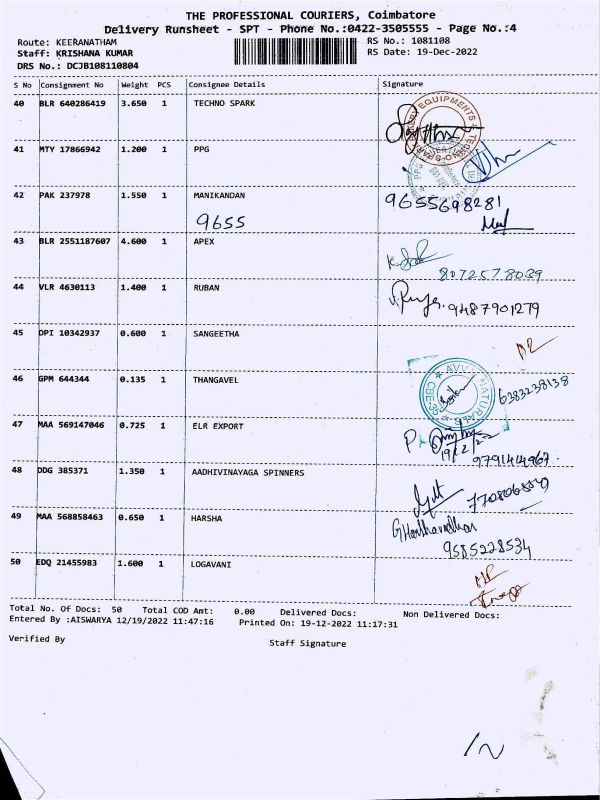 THE PROFESSIONAL COURIERS, Coimbatore
Delivery Runsheet - SPT - Phone No.:0422-3505555 - Page No.:4
Route: KEERANATHAM RS No.: 1081108
Staff: KRISHANA KUMAR RS Date: 19-Dec-2022
DRS No.: DCJB108110804
S No Consignment No Weight PCS Consignee Details Signature
40 BLR 640286419 3.650 1 TECHNO SPARK
41 MTY 17866942 1.200 1 PPG
42 PAK 237978 1.550 1 MANIKANDAN 9655698281
9655
43 BLR 2551187607 4.600 1 APEX
8072578039
44 VLR 4630113 1.400 1 RUBAN
9487901279
45 DPI 10342937 0.600 1 SANGEETHA
46 GPM 644344 0.135 1 THANGAVEL 6383238138
47 MAA 569147046 0.725 1 ELR EXPORT
19/12/22
9791414967
48 DDG 385371 1.350 1 AADHIVINAYAGA SPINNERS
49 MAA 568858463 0.650 1 HARSHA
9585228534
50 EDQ 21455983 1.600 1 LOGAVANI
Total No. Of Docs: 50 Total COD Amt: 0.00 Delivered Docs: Non Delivered Docs:
Entered By :AISWARYA 12/19/2022 11:47:16 Printed On: 19-12-2022 11:17:31
Verified By Staff Signature